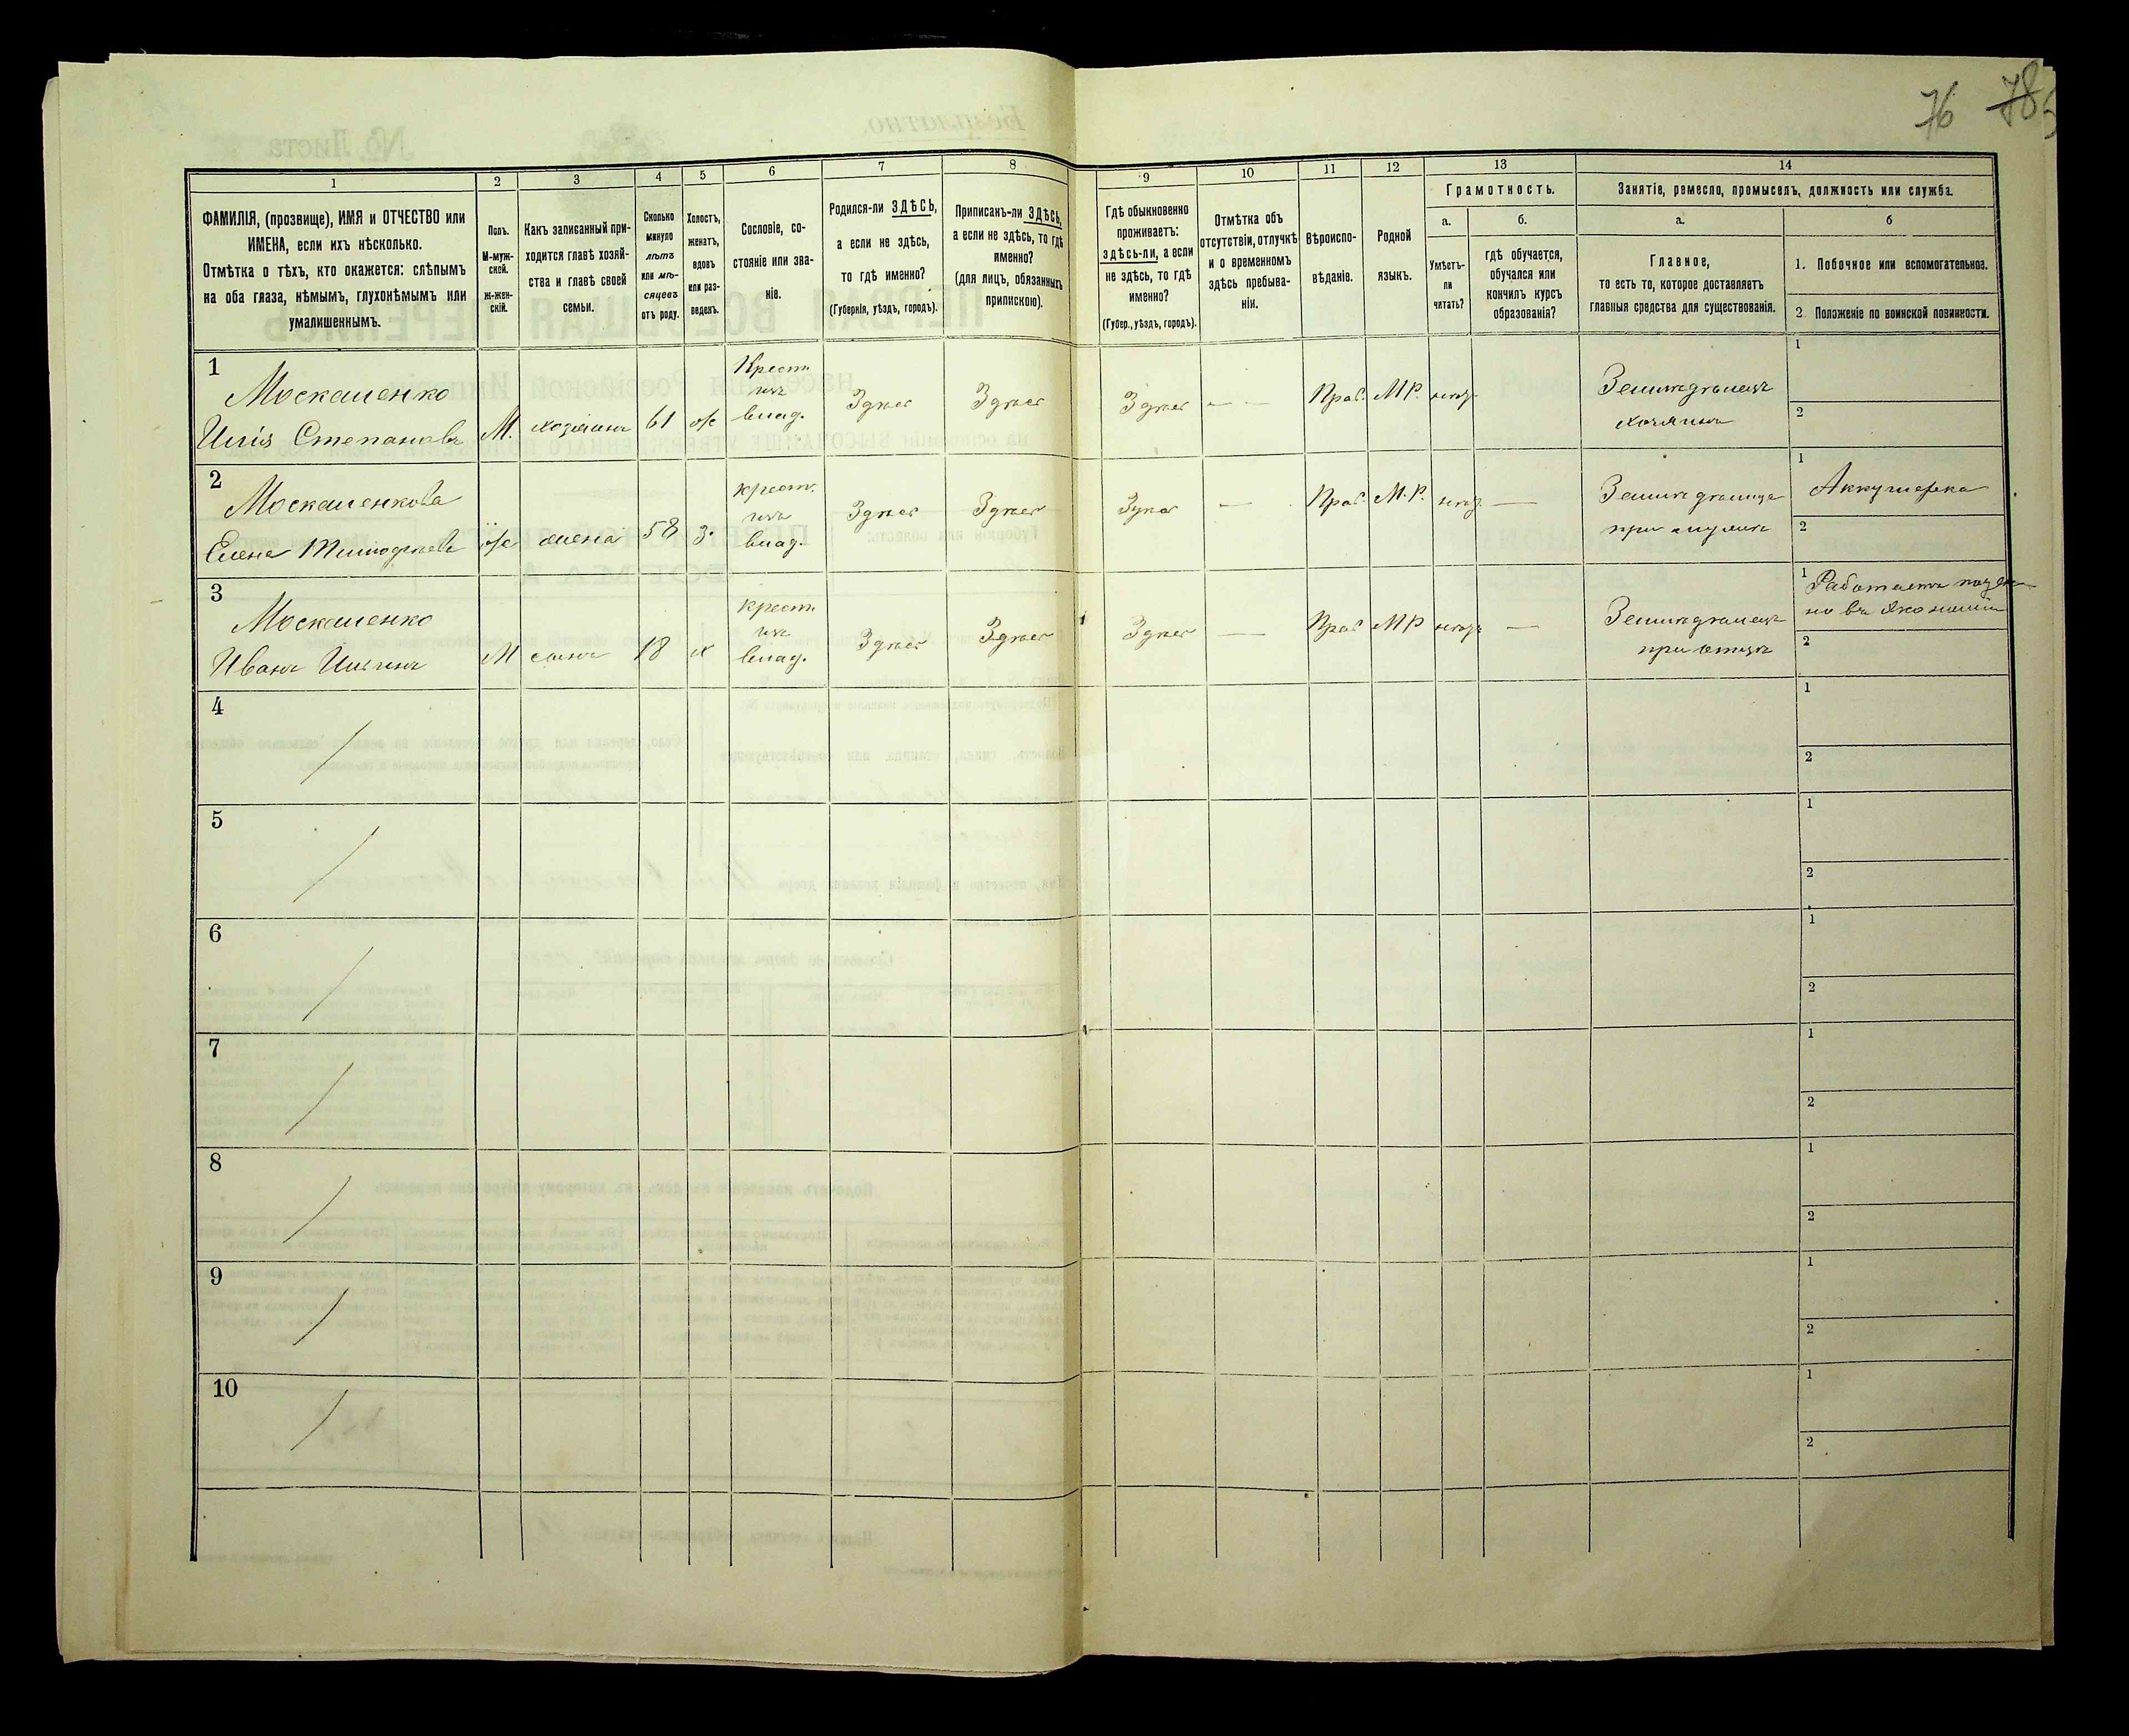 76 78
1
2
3
4
5
6
7
8
ФАМИЛІЯ, (прозвище), ИМЯ и ОТЧЕСТВО или
ИМЕНА, если ихъ нѣсколько.
Отмѣтка о тѣхъ, кто окажется: слѣпымъ
на оба глаза, нѣмымъ, глухонѣмымъ или
умалишеннымъ.
Полъ.
М-муж-
ской.
Ж-жен-
скій.
Какъ записанный при-
ходится главѣ хозяй-
ства и главѣ своей
семьи.
Сколько
минуло
лѣтъ
или мѣ-
сяцевъ
отъ роду.
Холостъ,
женатъ,
вдовъ
или раз-
веденъ.
Сословіе, со-
стояніе или зва-
ніе.
Родился-ли ЗДѢСЬ,
а если не здѣсь,
то гдѣ именно?
(Губернія, уѣздъ, городъ).
Приписанъ-ли ЗДѢСЬ,
а если не здѣсь, то гдѣ
именно?
(для лицъ, обязанныхъ
припискою).
9
10
11
12
13
14
Гдѣ обыкновенно
проживаетъ:
здѣсь-ли, а если
не здѣсь, то гдѣ
именно?
(Губер., уѣздъ, городъ).
Отмѣтка объ
отсутствіи, отлучкѣ
и о временномъ
здѣсь пребыва-
ніи.
Вѣроиспо-
вѣданіе.
Родной
языкъ.
Грамотность.
а.
Умѣетъ-
ли
читать?
б.
гдѣ обучается,
обучался или
кончилъ курсъ
образованія?
Занятіе, ремесло, промыселъ, должность или служба.
а.
Главное,
то есть то, которое доставляетъ
главныя средства для существованія.
б
1. Побочное или вспомогательное.
2. Положеніе по воинской повинности.
1
Москаленко
Илія Степановъ
М.
хозяинъ
61
ж
Крест.
изъ
влад.
Здѣсь
Здѣсь
Здѣсь
— —
Прав.
М.Р.
нѣтъ
Земледѣлецъ
хозяинъ
1
2
2
Москаленкова
Елена Тимофѣева
ж
жена
58
з.
Крест.
изъ
влад.
Здѣсь
Здѣсь
Здѣсь
—
Прав.
М.Р.
нѣтъ
—
Земледѣлица
при мужѣ
1
Аккушерка
2
3
Москаленко
Иванъ Ильинъ
М
сынъ
18
х
Крест.
изъ
влад.
Здѣсь
Здѣсь
Здѣсь
—
Прав
МР
нѣтъ
—
Земледѣлецъ
при отцѣ
1
Работаетъ поден-
но въ экономіи
2
4
1
2
5
1
2
6
1
2
7
1
2
8
1
2
9
1
2
10
1
2